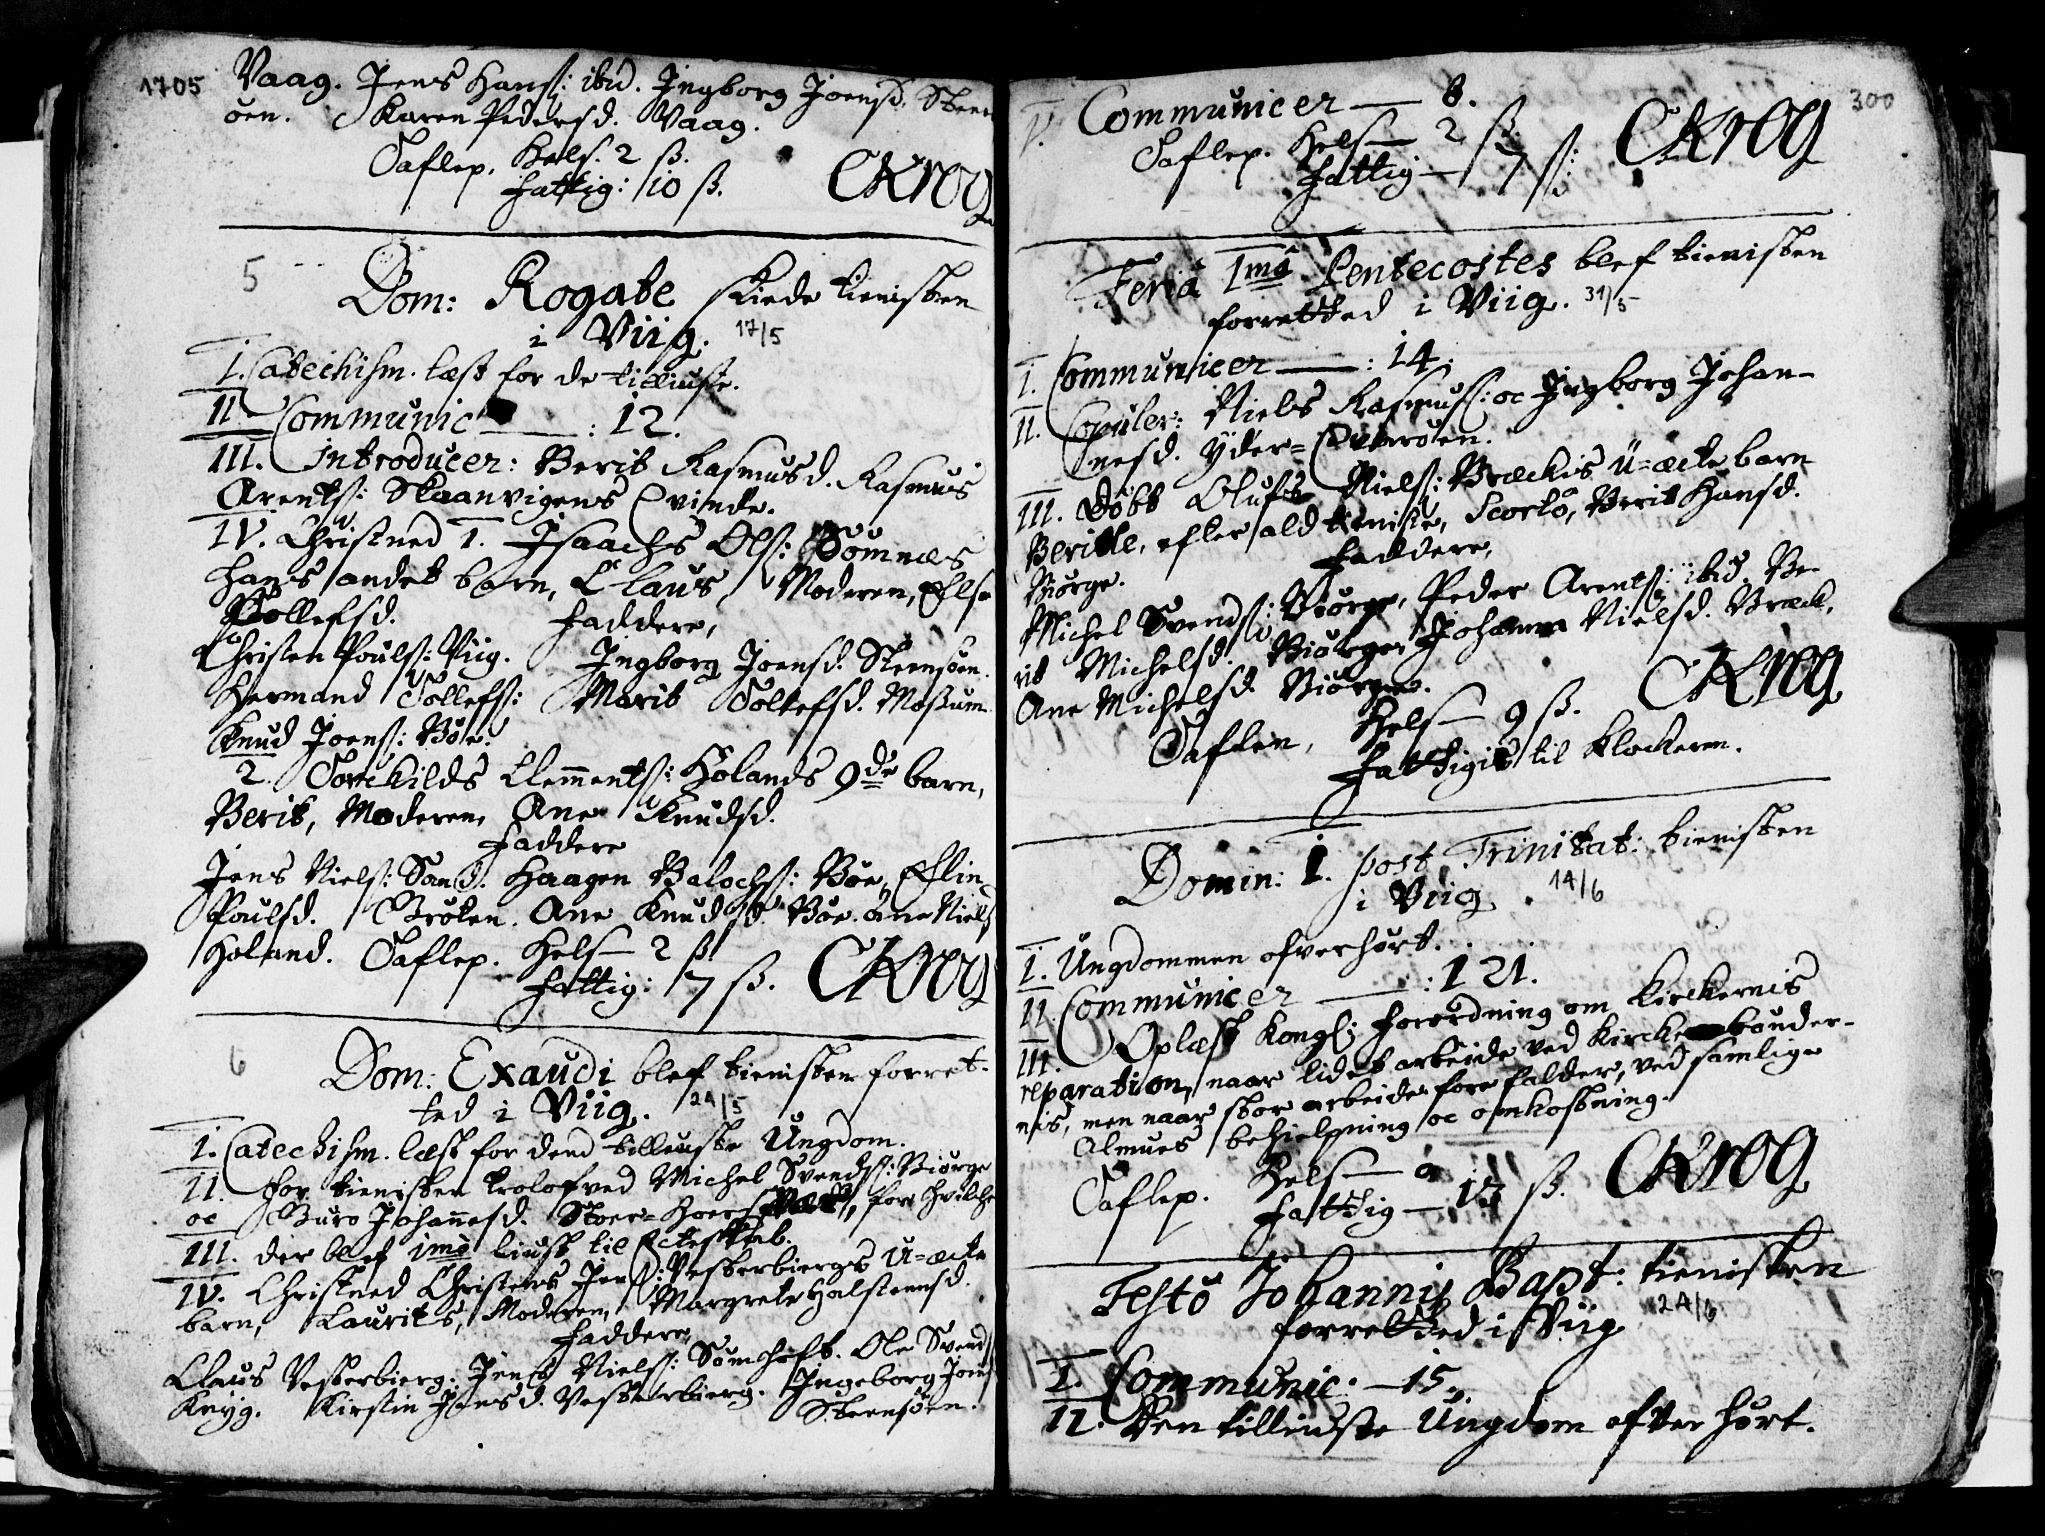 1705
Vaag. Jens Hanss: ibid. Ingborg Joensd. Steen
öen. Karen Pedersd. Vaag.
Taflep. Kels. 2 ß.
fattig: 10 ß. CKrog
5
Dom: Rogate skiede tienisten
i Viig. 17/5
I. Catechism. læst for de tilliuste.
II Communic : 12.
III. Introducer: Berit Rasmusd. Rasmus
Arents: Skaanvigens Qvinde.
IV. Christned 1. Isaachs Ols: Sömnes
hans andet barn, Claus Moderen, Else
Tollefsd. Faddere,
Christen Pouls: Viig. Ingborg Joensd. Steensöen.
Hermand Tollefs: Marit Tollefsd. Moßum
Knud Joens: Böe.
2. Torchilds Clements: Holands 9de barn,
Berit, Moderen Ane Knudsd.
Faddere
Jens Niels: Sand. Haagen Balochs: Böe, Elin
Poulsd. Gröten. Ane Knudsd. Böe. Ane Niels
Holand. Taflep. Kels— 2 ß
fattig: 7 ß. CKrog
6
Dom: Exaudi blef tienisten forret-
ted i Viig. 24/5
I. Catechism. læst for dend tilleuste Ungdom.
II. For tienisten trolofved Michel Svends: Biörge
oc Guro Johannesd. Stoer-Hoers, for hvilche
III. der blef 1mo liust til Ecteskab.
IV. Christned Christens Jens: Vesterbiergs u=æcte
barn, Laurits, Moderen, Margrete Halsteensd.
Faddere,
Claus Vesterbierg. Jens Niels: Sumshoft. Ole Svends
Knyg. Kirstin Jensd. Vesterbierg. Ingeborg Joens
Steensöen.
300
V. Communicer — 8.
Taflep. Kels— 2 ß.
fattig— 7 ß: CKrog
Feriâ Imâ Pentecostes blef tienisten
forretted i Viig. 31/5
I. Communicer— : 14.
II. Copuler: Niels Rasmuss: oc Ingborg Johan-
nesd. Yder= Qvaröen.
III. Döbt Olufs Niels: Brechis u=æcte barn
Beritte, efter ald tieniste, Scorto, Berit Hansd.
Biörge. Faddere,
Michel Svends: Biörge, Peder Arents: ibid. Be-
rit Michelsd. Biörge, Johanna Nielsd. Breck,
Ane Michelsd. Biörge.
Taflen, Kels— 9 ß. CKrog
fattigis til klockeren.
Domin: I. post Trinitat: tienisten
i Viig. 14/6
I. Ungdommen ofverhört.
II. Communicer — : 121.
III. Oplæst Kongl: forordning om kirckernis
reparation, naar lidet arbeide ved kircke bönder-
nis, men naar stor arbeide fore falder, ved samlige
Almues behielpning oc omkostning.
Taflep. Kels—
fattig— 13 ß. CKrog
Festo Johannis Bapt: tienisten
forretted i Viig 24/6
I. Communic: —15.
II. Den tilliudste Ungdom ofver hört.